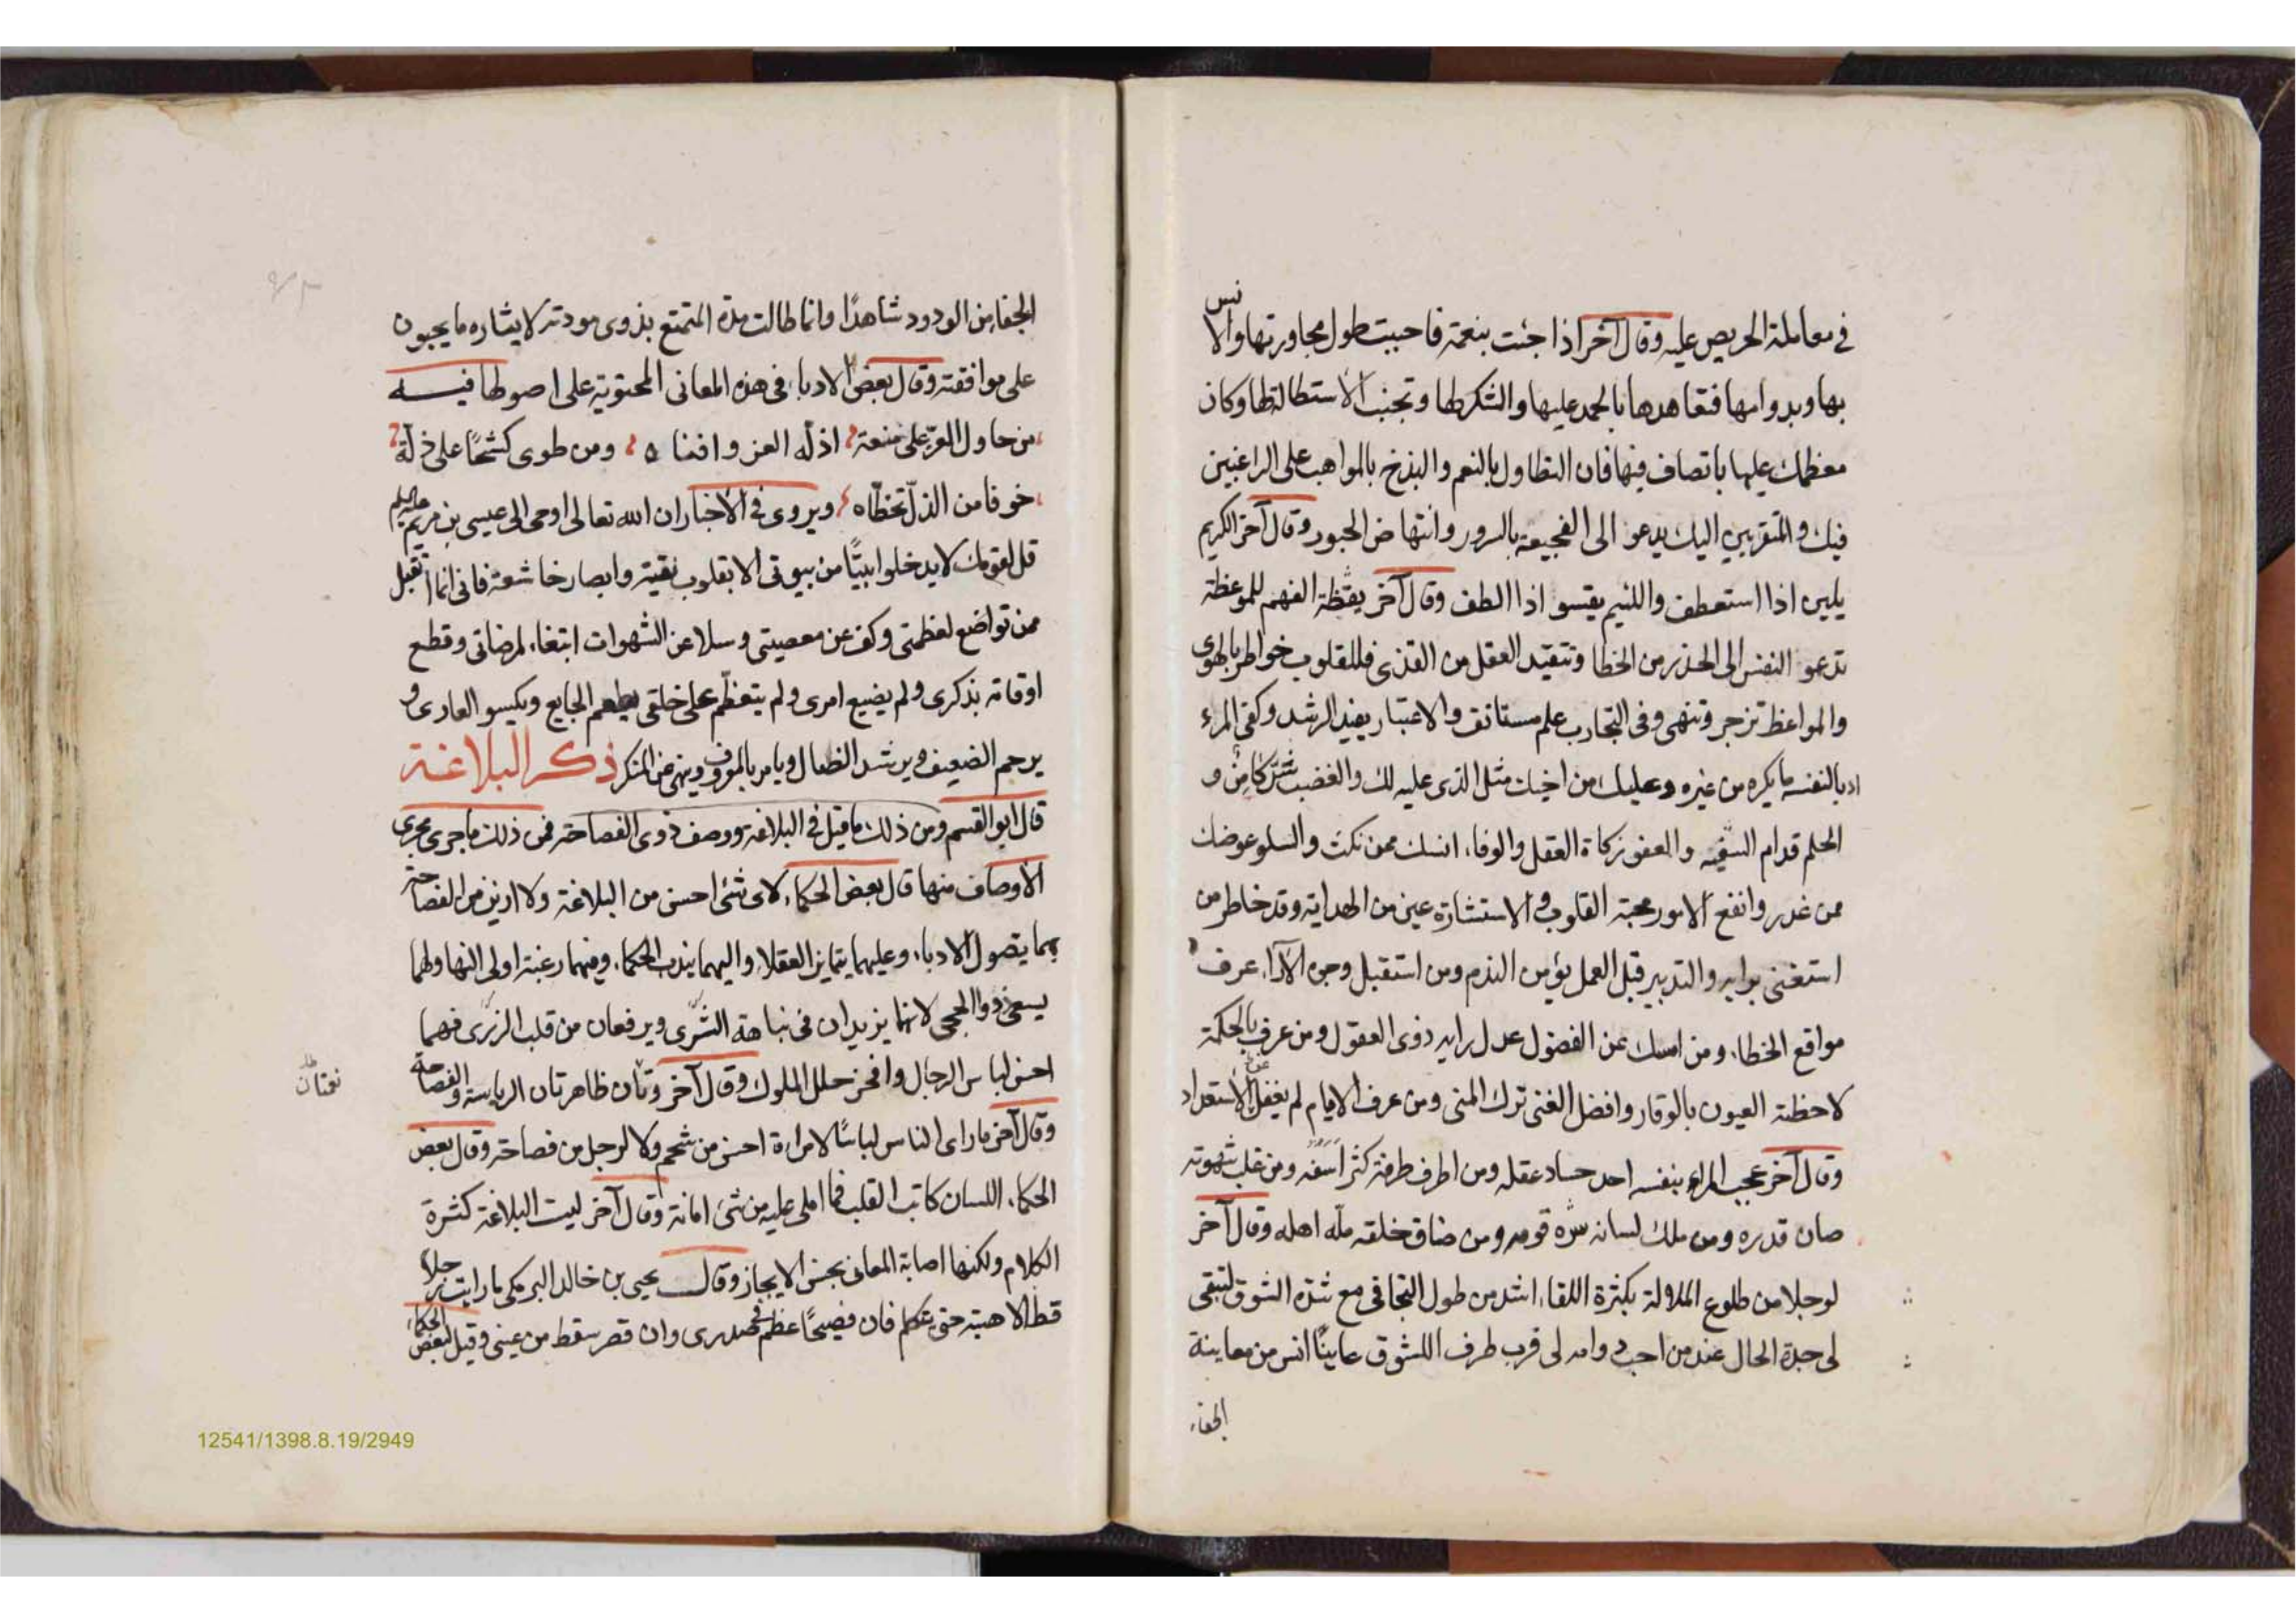 في معاملة الحريص عليه وقال آخر اذا جئت بنعمة فاحببت طول مجاورتها والانس
بها وبدوامها فتعاهدها بالحمد عليها والشكر لها وتجنب الاستطالة لها وكان
معظمك عليها باتصاف فيها فان التطاول بالنعم والبذخ بالمواهب على الراغبين
فيك والمتقربين اليك يدعو الى الفجيعة بالسرور وانتهاض الحبور وقال آخر الكريم
يلين اذا استعطف واللئيم يقسو اذا الطف وقال آخر يقظة الفهم للموعظة
تدعو النفس الى الحذر من الخطا وتنقيد العقل من القذى فللقلوب خواطر بالهوى
والمواعظ تزجر وتنهى وفى التجارب علم مستانف والاعتبار يفيد الرشد وكفى المرء
ادبا لنفسه ما يكره من غيره وعليك من اخيك مثل الذى عليه لك والغضب شرّ كامن و
الحلم قدام السفيه والعفو زكاة العقل والوفاء انسك ممن نكث والسلو عوضك
ممن غدر وانفع الامور محبة القلوب والاستشارة عين من الهداية وقد خاطر من
استغنى برايه والتدبير قبل العمل يؤمن الندم ومن استقبل وجوه الآراء عرف
مواقع الخطاء ومن امسك عن الفضول عدل رايه ذوى العقول ومن عرف بالحكمة
لاحظته العيون بالوقار وافضل الغنى ترك المنى ومن عرف الايام لم يغفل عن الاستعداد
وقال آخر عجب المراء بنفسه احد حساد عقله ومن اطرف طرفه كثر اسفه ومن غلب شهوته
صان قدره ومن ملك لسانه سرّه قومه ومن ضاق خلقه ملّه اهله وقال آخر
لوجلا من طلوع الملالة بكثرة اللقاء اشد من طول التجافى مع شدة الشوق لتبقى
لى جدة الحال عند من احب دوامه لى قرب طرف اللشوق عاينًا انس من معاينة
الجفاء
الجفا من الودود شاهدًا وانما طالت مدة المتمتع بذوى مودته لايثاره ما يحبون
على موافقته وقال بعض الادباء فى هذه المعانى المحتوية على اصولها فيه
من حاول العزّ على منعة اذله العز وافنا ه ومن طوى كشحًا على ذلّة
خوفا من الذل تخطّاه ويروى في الاخبار ان الله تعالى اوحى الى عيسى بن مريم عليه السلم
قل لقومك لا يدخلوا بيتًا من بيوتى الا بقلوب نقية وابصار خاشعة فانى انما اتقبل
ممن تواضع لعظمتى وكف عن معصيتى وسلا عن الشهوات ابتغاء لمرضاتى وقطع
اوقاته بذكرى ولم يضيع امرى ولم يتعظّم على خلقى يطعم الجايع ويكسو العارى و
يرحم الضعيف ويرشد الضال ويامر بالمعروف وينهى عن المنكر ذكر البلاغة
قال ابو القسم ومن ذلك ما قيل في البلاغة ووصف ذوى الفصاحة فمن ذلك ما جرى مجرى
الاوصاف منها قال بعض الحكماء لاى شئى احسن من البلاغة ولا ازين من الفصاحة
بهما يتصول الادباء وعليهما يتمايز العقلاء واليهما يندب الحكماء وفيهما رغبة اولى النها ولهما
يسعى ذووا الحجى لانهما يزيدان فى نباهة السّرى ويرفعان من قلب الزرى فهما
احسن لباس الرجال وافخر حلل الملوك وقال آخر وتأن ظاهرتان الرياسة والفصاحة
نعمتان ظ
وقال آخر ما راى الناس لباسًا لامراءة احسن من شحم ولا لرجل من فصاحة وقال بعض
الحكماء اللسان كاتب القلب فما املى عليه من شئ امانه وقال آخر ليست البلاغة كثرة
الكلام ولكنها اصابة المعانى بحسن الايجاز وقال يحيى بن خالد البرمكى ما رايت رجلا
قط الا هبته حتى يتكلم فان فصيحًا عظم فى صدرى وان قصر سقط من عينى وقيل لبعض الحكماء
12541/1398.8.19/2949